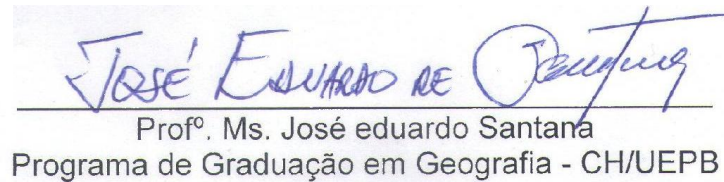 JOSÉ EDUARDO DE Santana
Profº. Ms. José eduardo Santana
Programa de Graduação em Geografia - CH/UEPB